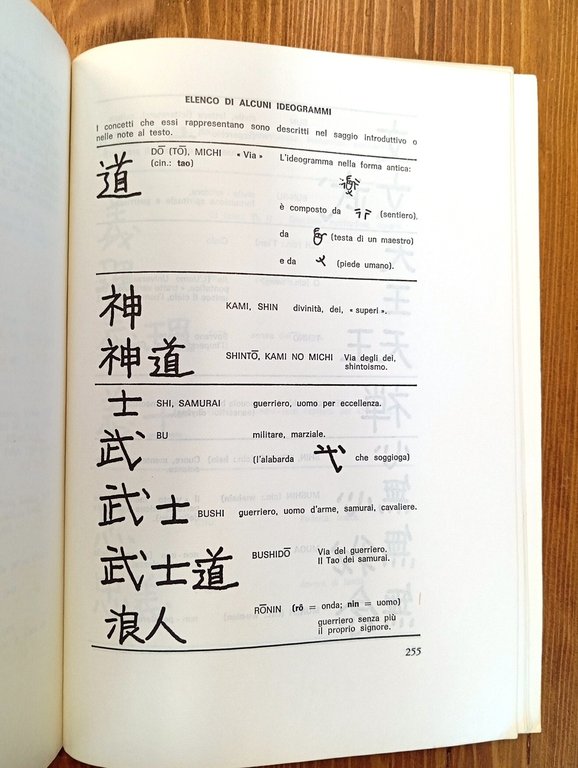 ELENCO DI ALCUNI IDEOGRAMMI
I concetti che essi rappresentano sono descritti nel saggio introduttivo o
nelle note al testo.
道 DŌ (TŌ), MICHI « Via » L'ideogramma nella forma antica:
(cin.: tao)
è composto da (sentiero).
da (testa di un maestro)
e da (piede umano).
神 KAMI, SHIN divinità, dei, « superi ».
神道 SHINTŌ, KAMI NO MICHI Via degli dei,
shintoismo.
士 SHI, SAMURAI guerriero, uomo per eccellenza.
武 BU militare, marziale.
(l'alabarda che soggioga)
武士 BUSHI guerriero, uomo d'arme, samurai, cavaliere.
武士道 BUSHIDŌ Via del guerriero.
Il Tao dei samurai.
浪人 RŌNIN (rō = onda; nin = uomo)
guerriero senza più
il proprio signore.
255